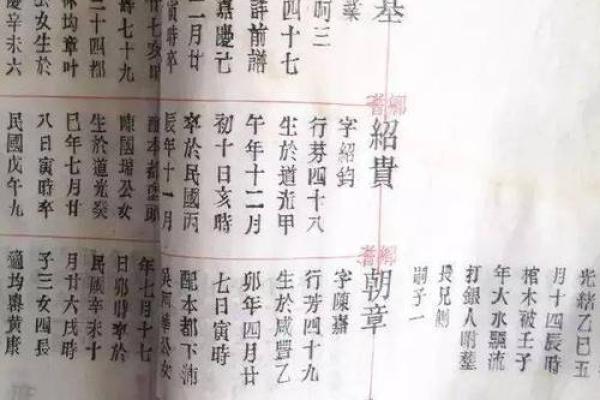 基
業
呵三
四十七
詳前譜
嘉慶己
二月廿
寅時卒
廿七亥時
七十九
二十四都
林均章叶
公女生於
慶辛未六
鄉耆
紹貴
字紹鈞
行芬四十八
生於道光甲
午年十二月
初十日亥時
卒於民國丙
辰年十一月
配本都頭
陳國瑞公女
生於道光癸
巳年七月廿
八日寅時卒
民國戊午九
光緒乙巳五
月十四辰時
棺木被壬子
年大水飄流
打銀人明墓
長兄側
嗣子一
鄉耆
朝章
字陳嘉
行芳四十九
生於咸豐乙
卯年四月廿
七日寅時
配本都下浦
公女
年七月十七
日卯時卒於
民國辛未十
月廿六戌時
子三女四長
適均黃康